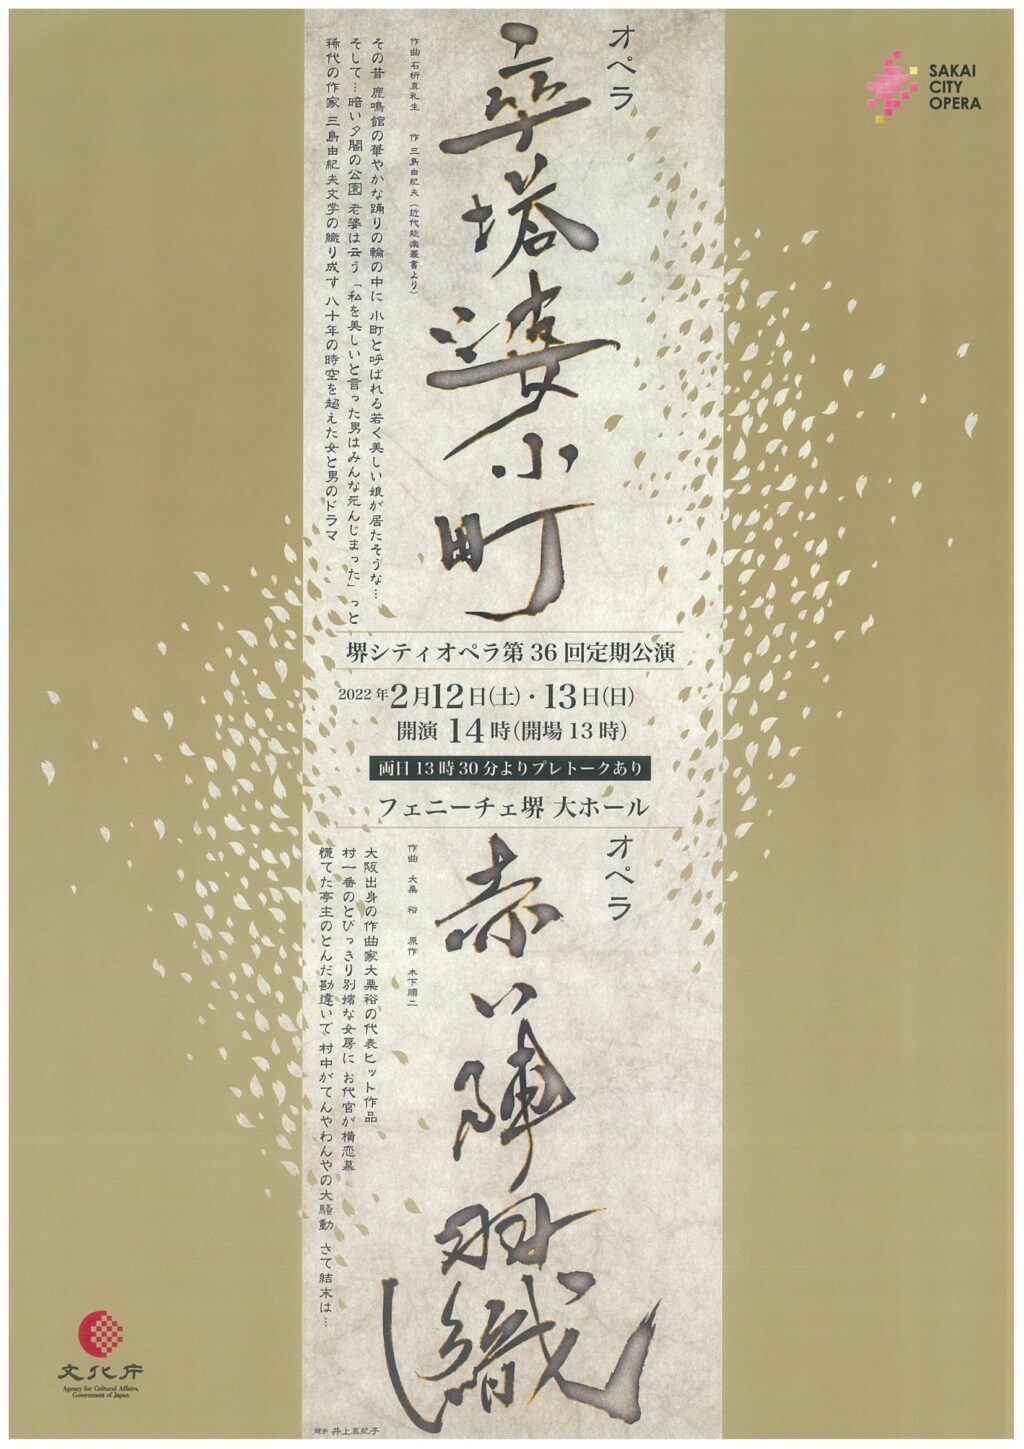 オペラ
卒塔婆小町
作曲 石桁真礼生 作 三島由紀夫（近代能楽叢書より）
その昔 鹿鳴館の華やかな踊りの輪の中に 小町と呼ばれる若く美しい娘が居たそうな…
そして…暗い夕闇の公園 老婆は云う「私を美しいと言った男はみんな死んじまった」っと
稀代の作家 三島由紀夫文学の織り成す 八十年の時空を超えた女と男のドラマ
SAKAI
CITY
OPERA
堺シティオペラ第36回定期公演
2022年2月12日(土)・13日(日)
開演 14時(開場13時)
両日13時30分よりプレトークあり
フェニーチェ堺 大ホール
オペラ
赤い陣羽織
作曲 大栗 裕 原作 木下順二
大阪出身の作曲家大栗裕の代表ヒット作品
村一番のとびっきり別嬪な女房に お代官が横恋慕
慌てた亭主のとんだ勘違いで 村中がてんやわんやの大騒動 さて結末は…
文化庁
Agency for Cultural Affairs,
Government of Japan
井上真紀子